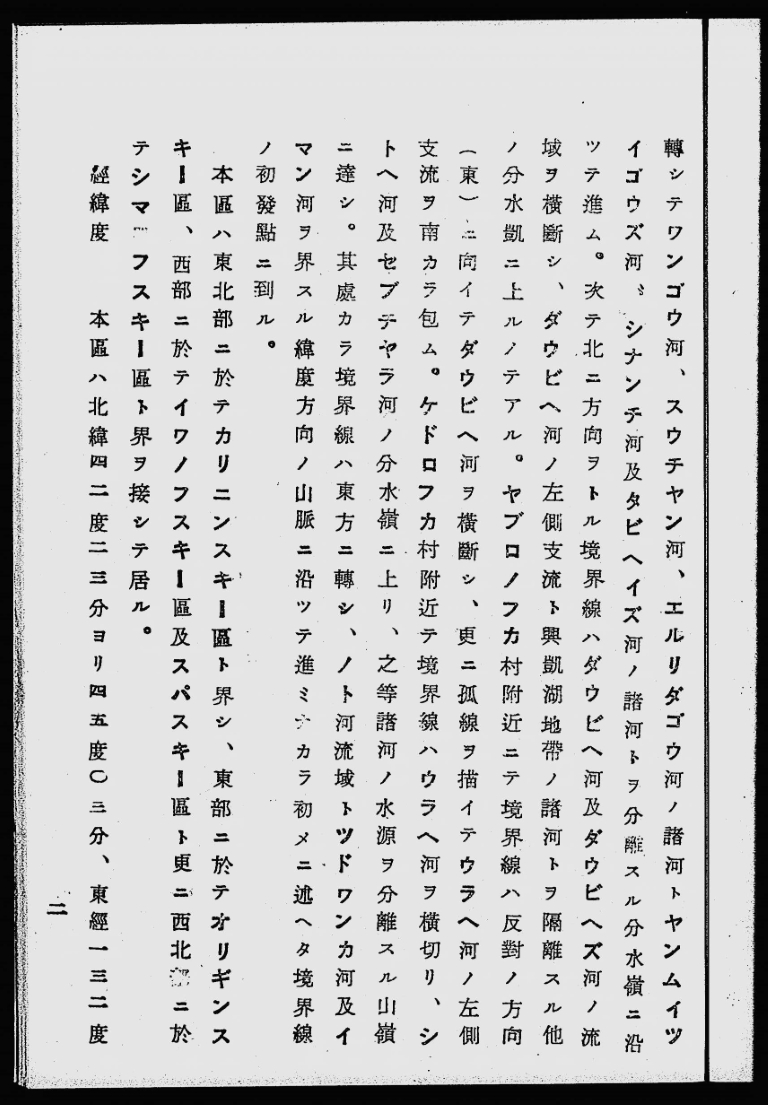 轉シテワンゴウ河、スウチヤン河、エルリダゴウ河ノ諸河トヤンムイツ
イゴウズ河、シナンチ河及タビヘイズ河ノ諸河トヲ分離スル分水嶺ニ沿
ツテ進ム。次テ北ニ方向ヲトル境界線ハダウビヘ河及ダウビヘズ河ノ流
域ヲ橫斷シ、ダウビヘ河ノ左側支流ト興凱湖地帶ノ諸河トヲ隔離スル他
ノ分水凱ニ上ルノテアル。ヤブロノフカ村附近ニテ境界線ハ反對ノ方向
(東)ニ向イテダウビヘ河ヲ橫斷シ、更ニ孤線ヲ描イテウラヘ河ノ左側
支流ヲ南カラ包ム。ケドロフカ村附近テ境界線ハウラヘ河ヲ橫切リ、シ
トヘ河及セブチヤラ河ノ分水嶺ニ上リ、之等諸河ノ水源ヲ分離スル山嶺
ニ達シ。其處カラ境界線ハ東方ニ轉シ、ノト河流域トツドワンカ河及イ
マン河ヲ界スル緯度方向ノ山脈ニ沿ツテ進ミナカラ初メニ述ヘタ境界線
ノ初發點ニ到ル。
本區ハ東北部ニ於テカリニンスキー區ト界シ、東部ニ於テオリギンス
キー區、西部ニ於テイワノフスキー區及スパスキー區ト更ニ西北部ニ於
テシマーフスキー區ト界ヲ接シテ居ル。
經緯度 本區ハ北緯四二度二三分ヨリ四五度〇三分、東經一三二度
二